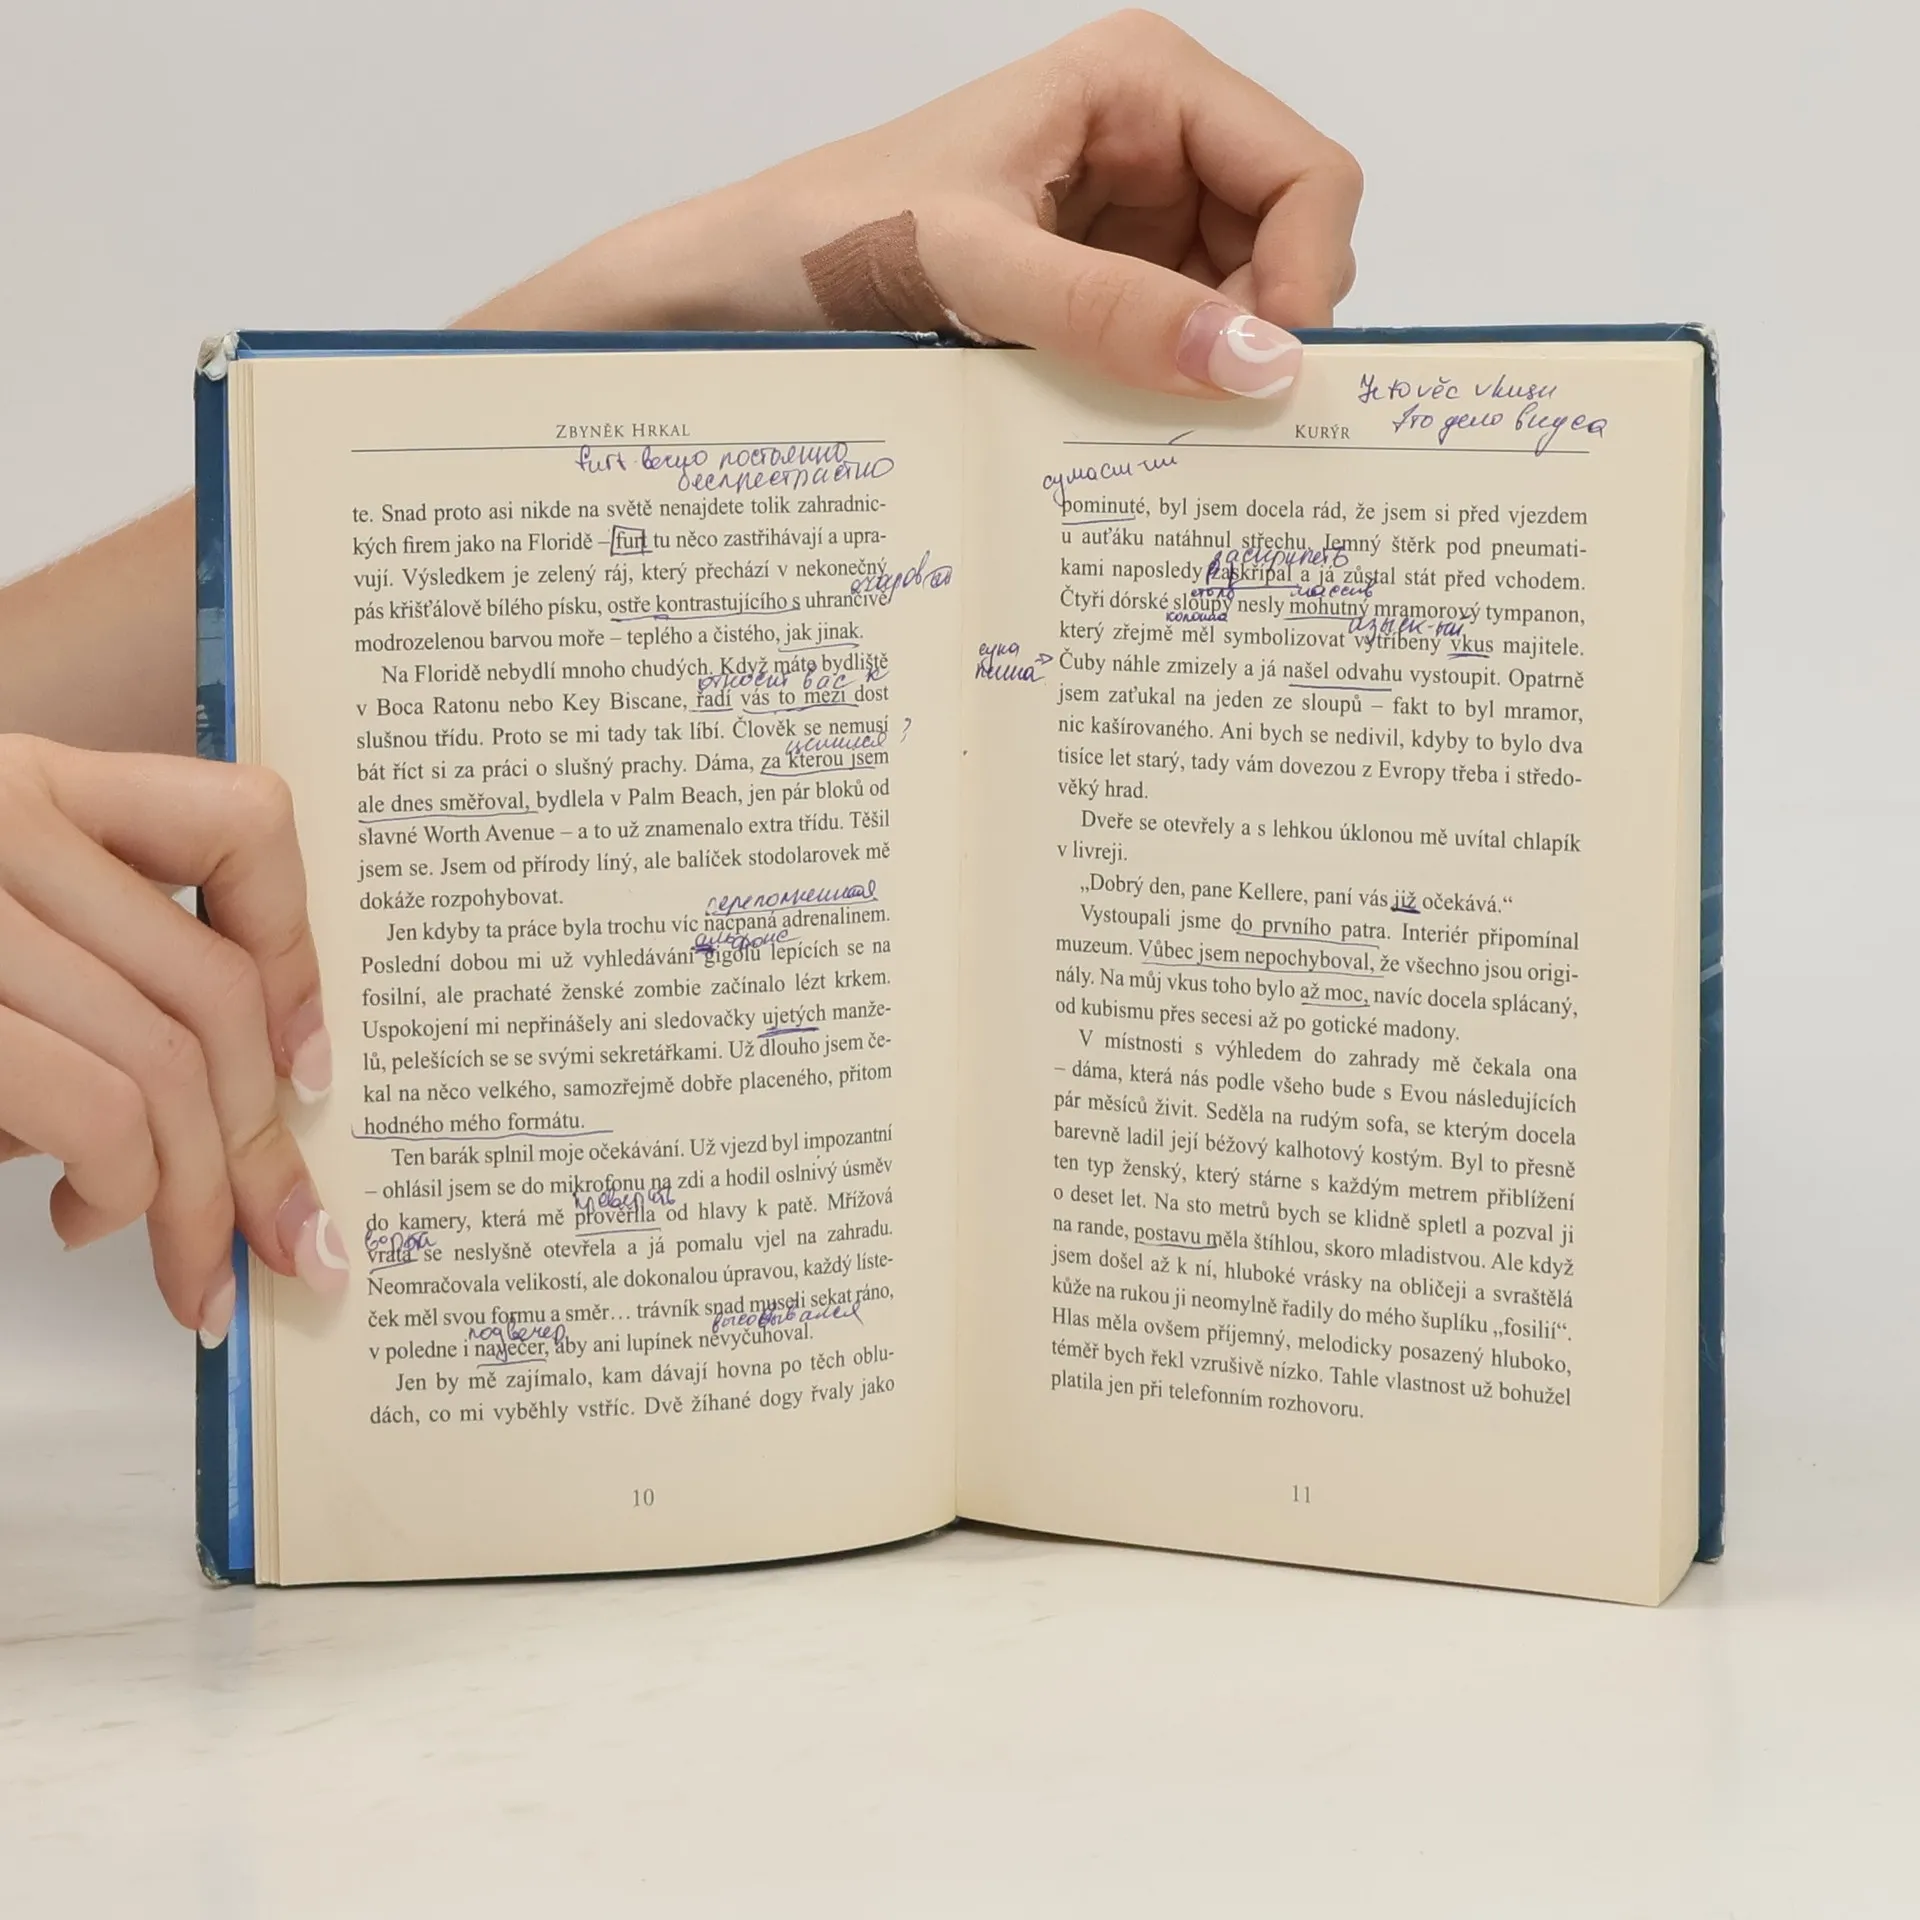 ZBYNĚK HRKAL
furt вечно постоянно
беспрестанно
te. Snad proto asi nikde na světě nenajdete tolik zahradnic-
kých firem jako na Floridě – furt tu něco zastřihávají a upra-
vují. Výsledkem je zelený ráj, který přechází v nekonečný
pás křišťálově bílého písku, ostře kontrastujícího s uhrančivě
modrozelenou barvou moře – teplého a čistého, jak jinak.
Na Floridě nebydlí mnoho chudých. Když máte bydliště
относит вас к
v Boca Ratonu nebo Key Biscane, řadí vás to mezi dost
slušnou třídu. Proto se mi tady tak líbí. Člověk se nemusí ?
bát říct si za práci o slušný prachy. Dáma, za kterou jsem
ale dnes směřoval, bydlela v Palm Beach, jen pár bloků od
slavné Worth Avenue – a to už znamenalo extra třídu. Těšil
jsem se. Jsem od přírody líný, ale balíček stodolarovek mě
dokáže rozpohybovat.
переполненная
Jen kdyby ta práce byla trochu víc nacpaná adrenalinem.
альфонс
Poslední dobou mi už vyhledávání gigolů lepících se na
fosilní, ale prachaté ženské zombie začínalo lézt krkem.
Uspokojení mi nepřinášely ani sledovačky ujetých manže-
lů, pelešících se se svými sekretářkami. Už dlouho jsem če-
kal na něco velkého, samozřejmě dobře placeného, přitom
hodného mého formátu.
Ten barák splnil moje očekávání. Už vjezd byl impozantní
– ohlásil jsem se do mikrofonu na zdi a hodil oslnivý úsměv
проверить
do kamery, která mě prověřila od hlavy k patě. Mřížová
ворота
vrata se neslyšně otevřela a já pomalu vjel na zahradu.
Neomračovala velikostí, ale dokonalou úpravou, každý líste-
ček měl svou formu a směr… trávník snad museli sekat ráno,
подвечер высовывался
v poledne i navečer, aby ani lupínek nevyčuhoval.
Jen by mě zajímalo, kam dávají hovna po těch oblu-
dách, co mi vyběhly vstříc. Dvě žíhané dogy řvaly jako
10
Je to věc vkusu
Это дело вкуса
KURÝR
pominuté, byl jsem docela rád, že jsem si před vjezdem
u auťáku natáhnul střechu. Jemný štěrk pod pneumati-
kami naposledy zaskřípal a já zůstal stát před vchodem.
столб
Čtyři dórské sloupy nesly mohutný mramorový tympanon,
колонна
který zřejmě měl symbolizovat vytříbený vkus majitele.
сука
Čuby náhle zmizely a já našel odvahu vystoupit. Opatrně
jsem zaťukal na jeden ze sloupů – fakt to byl mramor,
nic kašírovaného. Ani bych se nedivil, kdyby to bylo dva
tisíce let starý, tady vám dovezou z Evropy třeba i středo-
věký hrad.
Dveře se otevřely a s lehkou úklonou mě uvítal chlapík
v livreji.
„Dobrý den, pane Kellere, paní vás již očekává.“
Vystoupali jsme do prvního patra. Interiér připomínal
muzeum. Vůbec jsem nepochyboval, že všechno jsou origi-
nály. Na můj vkus toho bylo až moc, navíc docela splácaný,
od kubismu přes secesi až po gotické madony.
V místnosti s výhledem do zahrady mě čekala ona
– dáma, která nás podle všeho bude s Evou následujících
pár měsíců živit. Seděla na rudým sofa, se kterým docela
barevně ladil její béžový kalhotový kostým. Byl to přesně
ten typ ženský, který stárne s každým metrem přiblížení
o deset let. Na sto metrů bych se klidně spletl a pozval ji
na rande, postavu měla štíhlou, skoro mladistvou. Ale když
jsem došel až k ní, hluboké vrásky na obličeji a svraštělá
kůže na rukou ji neomylně řadily do mého šuplíku „fosilií“.
Hlas měla ovšem příjemný, melodicky posazený hluboko,
téměř bych řekl vzrušivě nízko. Tahle vlastnost už bohužel
platila jen při telefonním rozhovoru.
11